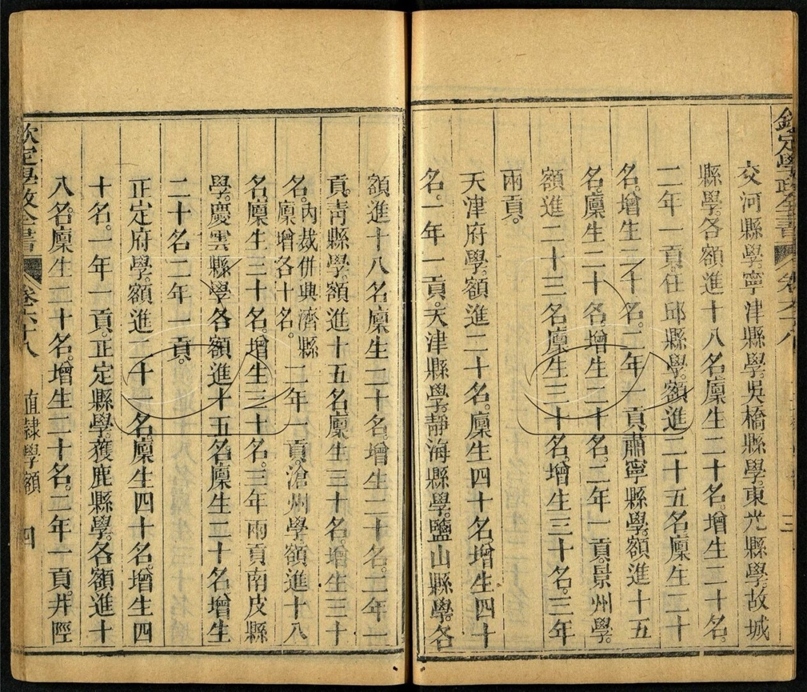 欽定學政全書 卷六十八 三
交河縣學。寧津縣學。吳橋縣學。東光縣學。故城
縣學。各額進十八名。廩生二十名。增生二十名。
二年一貢。任邱縣學。額進二十五名。廩生二十
名。增生二十名。二年一貢。肅寧縣學。額進十五
名。廩生二十名。增生二十名。二年一貢。景州學。
額進二十三名。廩生三十名。增生三十名。三年
兩貢。
天津府學。額進二十名。廩生四十名。增生四十
名。一年一貢。天津縣學。靜海縣學。鹽山縣學。各
額進十八名。廩生二十名。增生二十名。二年一
貢。靑縣學。額進十五名。廩生三十名。增生三十
名。內裁併興濟縣廩增各十名。二年一貢。滄州學。額進十八
名。廩生三十名。增生三十名。三年兩貢。南皮縣
學。慶雲縣學。各額進十五名。廩生二十名。增生
二十名。二年一貢。
正定府學。額進二十一名。廩生四十名。增生四
十名。一年一貢。正定縣學。獲鹿縣學。各額進十
八名。廩生二十名。增生二十名。二年一貢。井陘
欽定學政全書 卷六十八 直隸學額 四